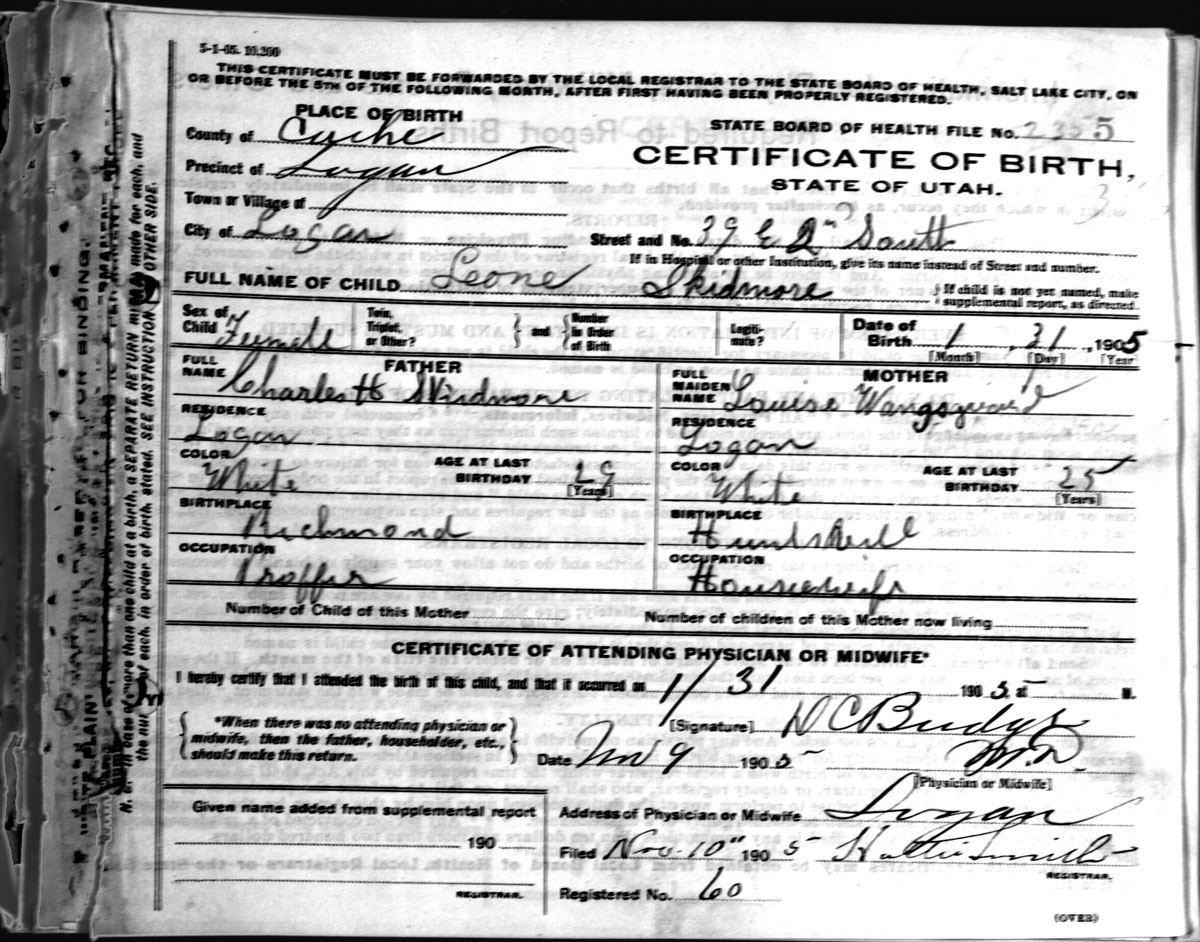 5-1-05. 10,200
THIS CERTIFICATE MUST BE FORWARDED BY THE LOCAL REGISTRAR TO THE STATE BOARD OF HEALTH, SALT LAKE CITY, ON
OR BEFORE THE 5TH OF THE FOLLOWING MONTH, AFTER FIRST HAVING BEEN PROPERLY REGISTERED.
PLACE OF BIRTH
STATE BOARD OF HEALTH FILE No. 2355
County of Cache
CERTIFICATE OF BIRTH,
Precinct of Logan
STATE OF UTAH.
Town or Village of
City of Logan Street and No. 39 E 2nd South
If in Hospital or other Institution, give its name instead of Street and number.
FULL NAME OF CHILD Leone Skidmore } If child is not yet named, make supplemental report, as directed.
Sex of Child Female Twin, Triplet, or Other? } and { Number in Order of Birth Legiti- mate? Date of Birth 1 31, 1905
[Month] [Day] [Year]
FATHER MOTHER
FULL NAME Charles H Skidmore FULL MAIDEN NAME Louise Wangsgaard
RESIDENCE RESIDENCE
Logan Logan
COLOR White AGE AT LAST BIRTHDAY 29 [Years] COLOR White AGE AT LAST BIRTHDAY 25 [Years]
BIRTHPLACE BIRTHPLACE
Richmond
OCCUPATION OCCUPATION
Housewife
Number of Child of this Mother Number of children of this Mother now living
CERTIFICATE OF ATTENDING PHYSICIAN OR MIDWIFE*
I hereby certify that I attended the birth of this child, and that it occurred on 1/31 1905, at M.
{ *When there was no attending physician or midwife, then the father, householder, etc., should make this return. }
[Signature] D C Budge
M.D.
Date 9 1905
[Physician or Midwife]
Given name added from supplemental report
Address of Physician or Midwife Logan
190
Filed Nov. 10" 1905 Hattie Smith
REGISTRAR.
REGISTRAR.
Registered No. 60
(OVER)
N. B.—In case of more than one child at a birth, a SEPARATE RETURN must be made for each, and
the number of each, in order of birth, stated. SEE INSTRUCTIONS ON OTHER SIDE.